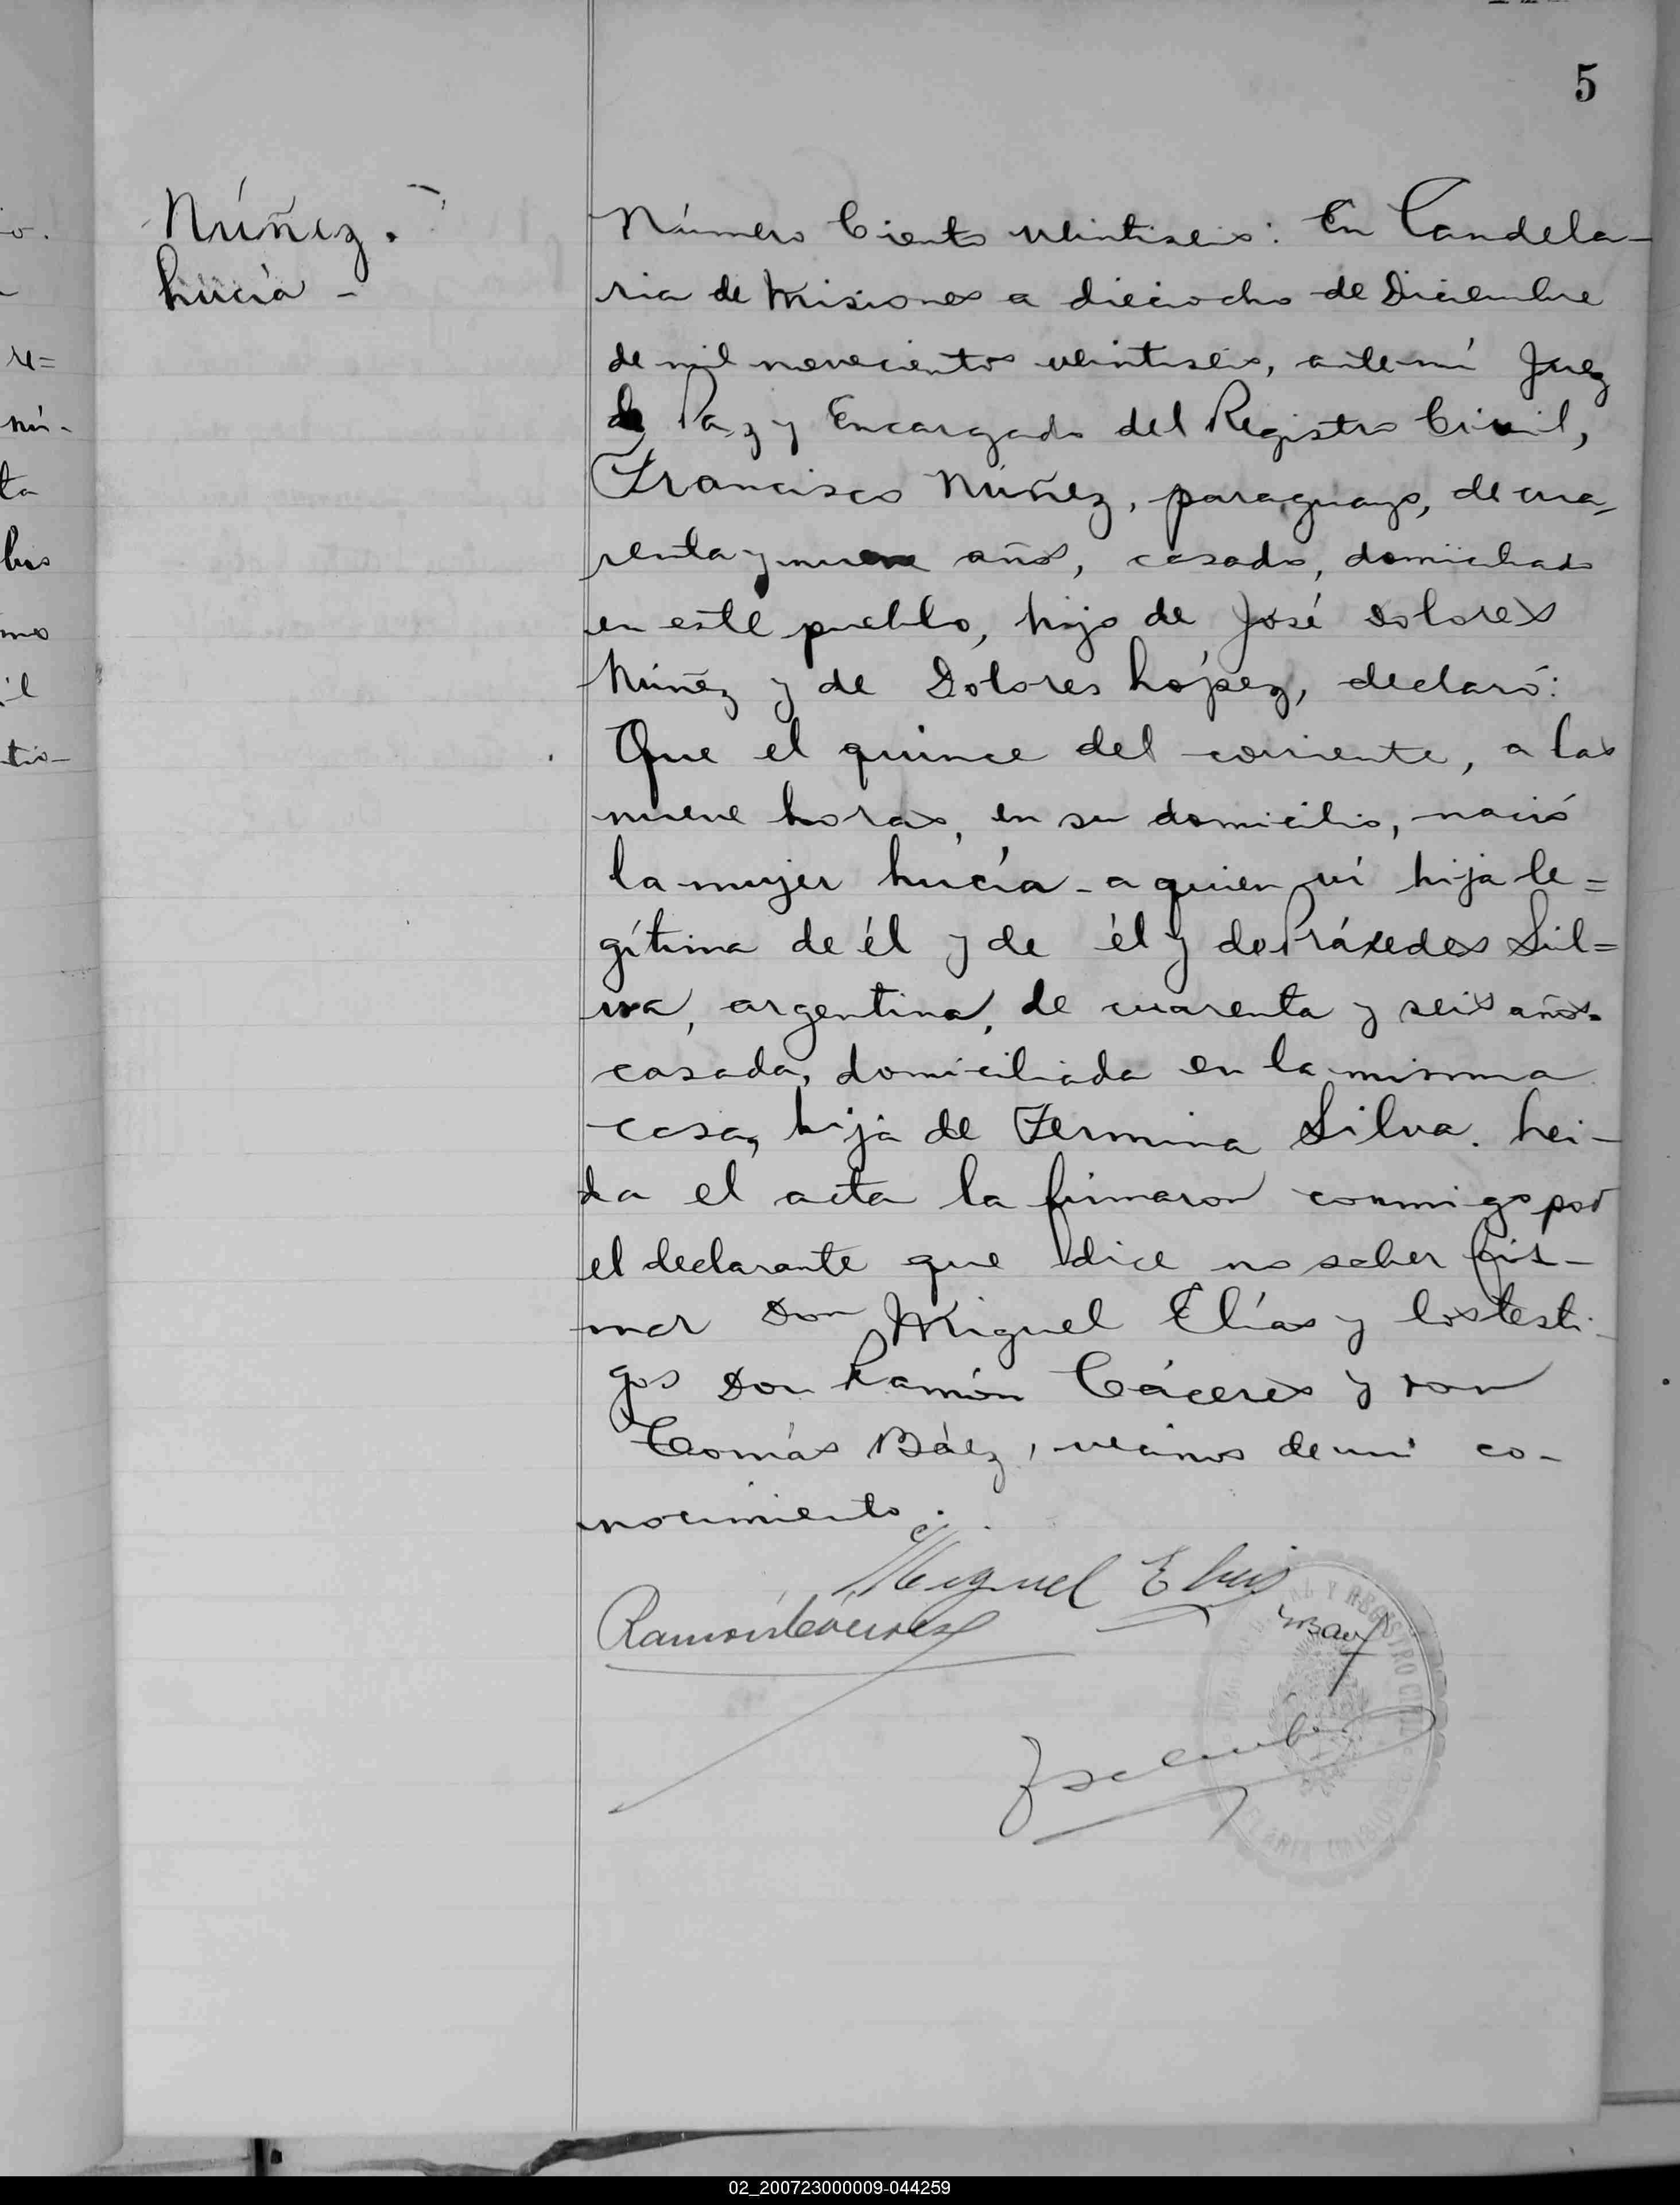 5
Núñez.
Lucía -
Número Ciento veintiseis: En Candela-
ria de Misiones a dieciocho de Diciembre
de mil novecientos veintiseis, ante mí Juez
de Paz y Encargado del Registro Civil,
Francisco Núñez, paraguayo, de cua-
renta y nueve años, casado, domiciliado
en este pueblo, hijo de José Dolores
Núñez y de Dolores López, declaró:
Que el quince del corriente, a las
nueve horas, en su domicilio, nació
la mujer Lucía - a quien ví hija le=
gítima de él y de él y de Práxedes Sil=
va, argentina, de cuarenta y seis años
casada, domiciliada en la misma
casa, hija de Fermina Silva. Lei-
da el acta la firmaron conmigo por
el declarante que dice no saber fir-
mar Don Miguel Elías y los testi-
gos Don Ramón Cáceres y don
Tomás Báez, vecinos de mi co-
nocimiento.
Miguel Elias
Ramón Cáceres
TBaez
Y REGISTRO CIVIL
02_200723000009-044259